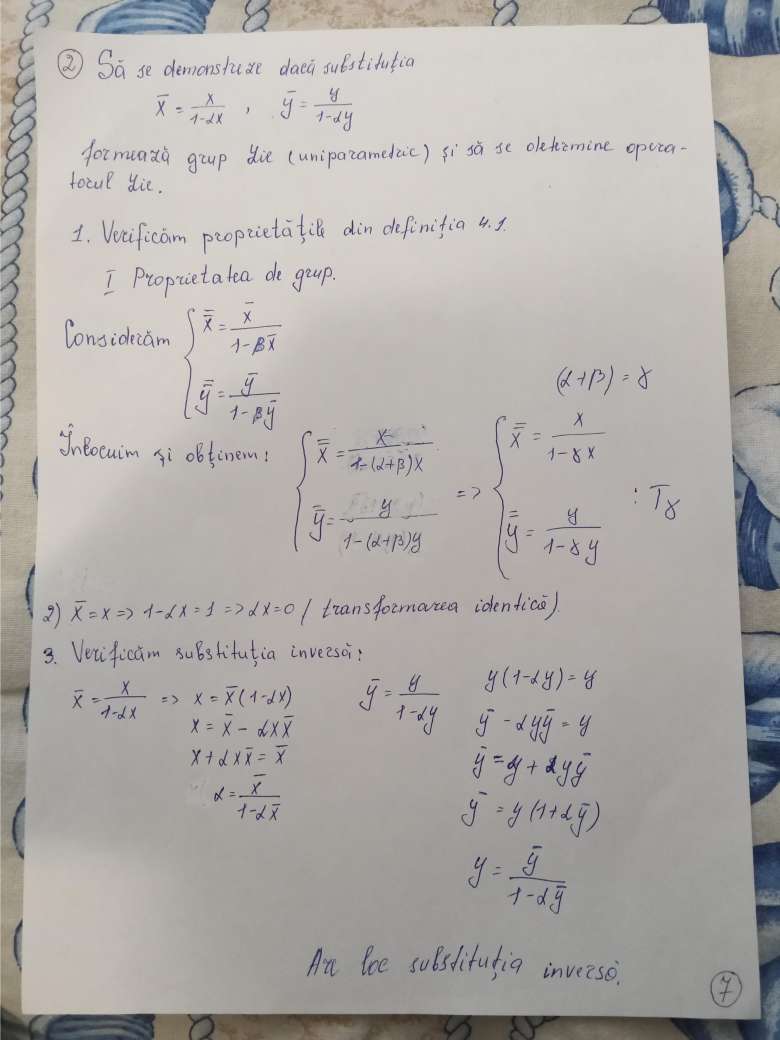 ② Să se demonstreze dacă substituția
x̄ = x/(1-αx) , ȳ = y/(1-αy)
formează grup Lie (uniparametric) și să se determine opera-
torul Lie.
1. Verificăm proprietățile din definiția 4.1.
I Proprietatea de grup.
Considerăm { x̄̄ = x̄/(1-βx̄)
ȳ̄ = ȳ/(1-βȳ)
(α+β) = γ
Înlocuim și obținem: { x̄̄ = x/(1-(α+β)x) => { x̄̄ = x/(1-γx)
ȳ̄ = y/(1-(α+β)y) ȳ̄ = y/(1-γy) : Tγ
2) x̄ = x => 1-αx = 1 => αx = 0 / transformarea identică).
3. Verificăm substituția inversă:
x̄ = x/(1-αx) => x = x̄(1-αx) ȳ = y/(1-αy) y(1-αy) = y
x = x̄ - αxx̄ ȳ - αyȳ = y
x + αxx̄ = x̄ ȳ = y + αyȳ
α = x̄/(1-αx̄) ȳ = y(1+αȳ)
y = ȳ/(1-αȳ)
Are loc substituția inversă.
7